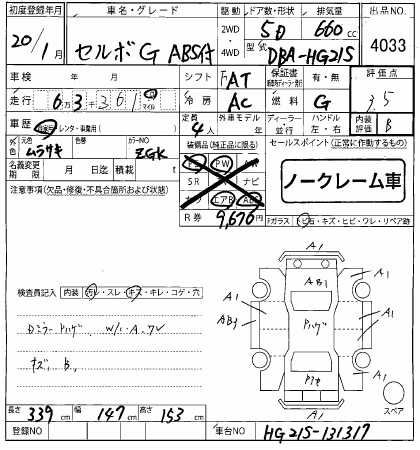 初度登録年月 車名・グレード 駆動 ドア数・形状 排気量 出品NO
20/1月 セルボ G ABS付 2WD・4WD 5D 660cc 4033
型式 DBA-HG21S
車検 年 月 シフト FAT 保証書 有・無 評価点
走行 6万3千361 km マイル 冷房 AC 燃料 G 3.5
車歴 自家用 レンタ・事業用( ) 定員 4人 外車モデル 年 ディーラー 並行 ハンドル 左・右 内装評価 B
外色 元色 ムラサキ 色替 カラーNO ZGK 装備品(純正品に限る) セールスポイント(正常に作動するもの)
名義変更期限 月 日迄 積載 t PS PW
SR ナビ ノークレーム車
注意事項(欠品・修復・不具合箇所および状態) エアB
R券 9,670円 Fガラス トビ石・キズ・ヒビ・ワレ・リペア跡
A1
AB1 A1 A1
検査員記入 内装 汚レ・スレ・キズ・キレ・コゲ・穴 AB3 A1
Dミラー Pハゲ W/ハ.A.ワレ Pハゲ
キズ B. A1
Pアセ A1
A1 スペア
長さ 339cm 幅 147cm 高さ 153cm
登録NO 車台NO HG21S-131317